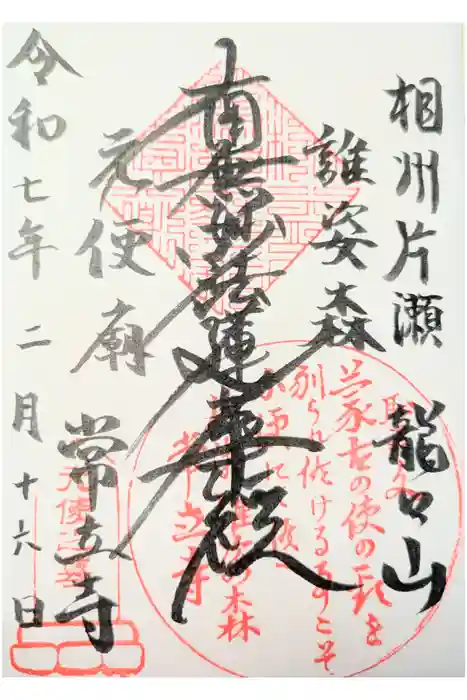 相州片瀬 龍口山
誰姿森
南無妙法蓮華経
元使廟
常立寺
令和七年二月十六日
蒙古の使の頸を
刎られ候ける事こそ
誰姿の森
常立寺